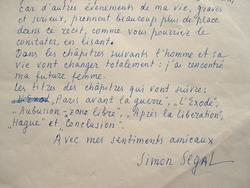 car d'autres évènements de ma vie, graves
et sérieux, prennent beaucoup plus de place
dans ce récit, comme vous pourriez le
constater, en lisant.
Dans les chapitres suivants l'homme et sa
vie vont changer totalement: j'ai rencontré
ma future femme.
Les titres des chapitres qui vont suivre:
"Paris avant la guerre", "L'Exode",
"Aubusson - zone libre", "Après la libération",
"Hague" et "Conclusion".
Avec mes sentiments amicaux
Simon Segal